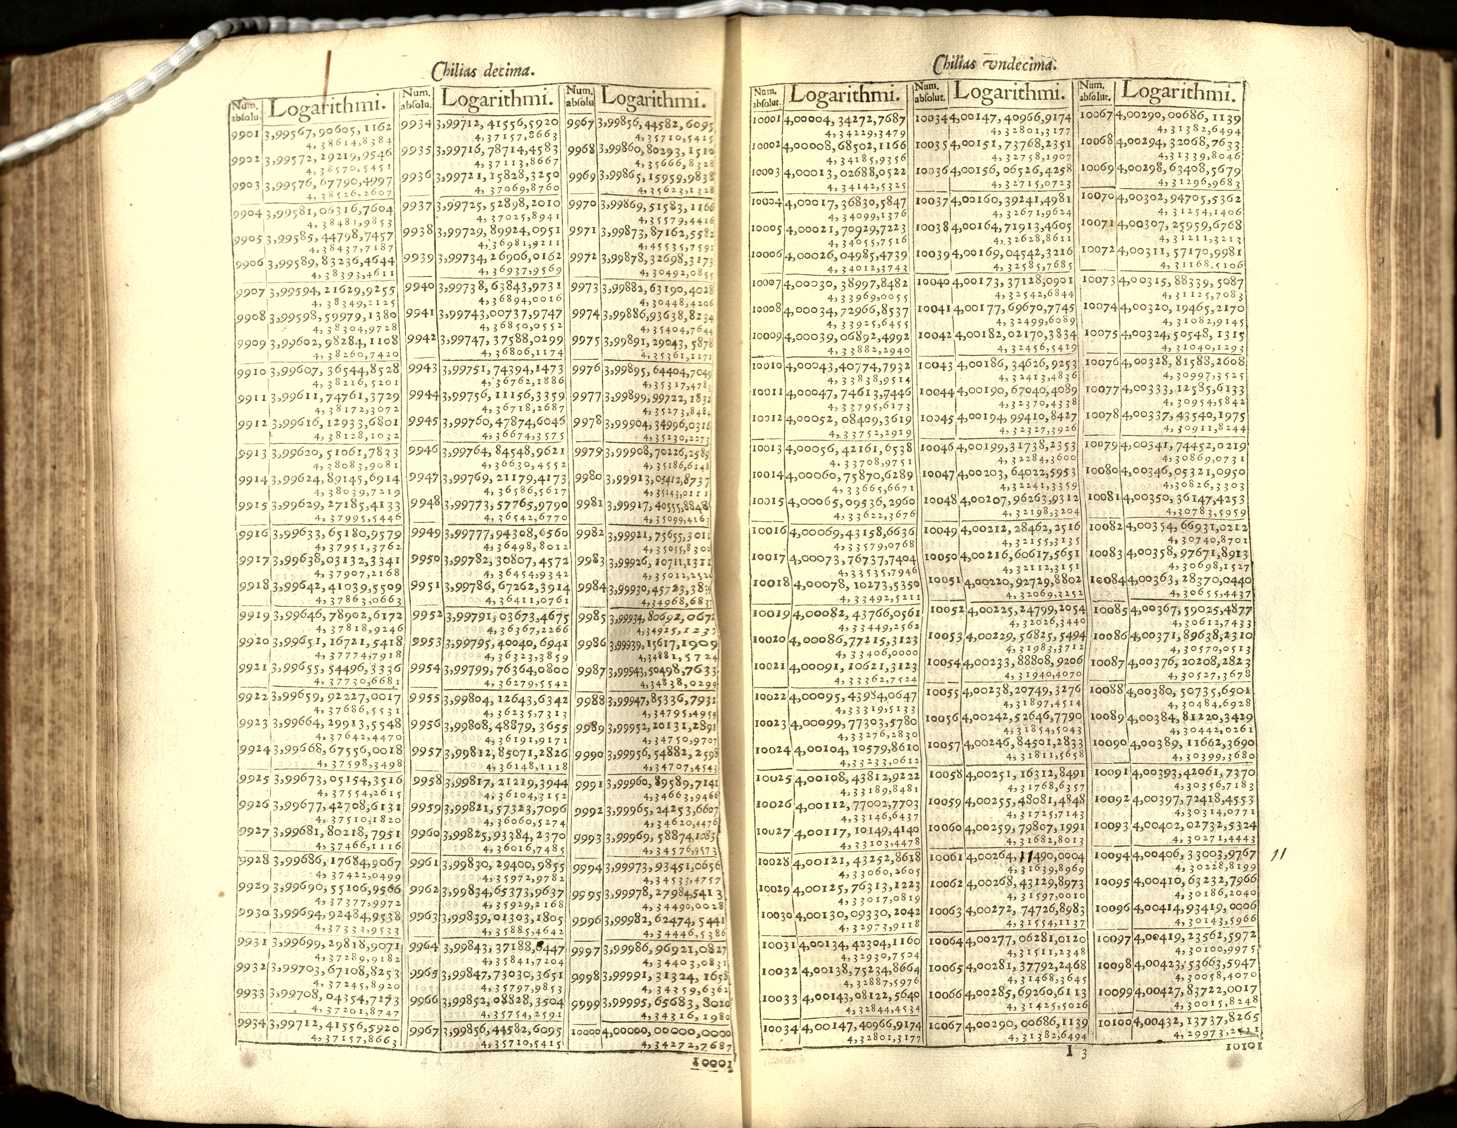 Chilias decima.
Num. absolu. Logarithmi.
9901 3,99567,90605,1162
4,38614,8384
9902 3,99572,19219,9546
4,38570,5451
9903 3,99576,67790,4997
4,38526,2607
9904 3,99581,06316,7604
4,38481,9853
9905 3,99585,44798,7457
4,38437,7187
9906 3,99589,83236,4644
4,38393,4611
9907 3,99594,21629,9255
4,38349,2125
9908 3,99598,59979,1380
4,38304,9728
9909 3,99602,98284,1108
4,38260,7420
9910 3,99607,36544,8528
4,38216,5201
9911 3,99611,74761,3729
4,38172,3072
9912 3,99616,12933,6801
4,38128,1032
9913 3,99620,51061,7833
4,38083,9081
9914 3,99624,89145,6914
4,38039,7219
9915 3,99629,27185,4133
4,37995,5446
9916 3,99633,65180,9579
4,37951,3762
9917 3,99638,03132,3341
4,37907,2168
9918 3,99642,41039,5509
4,37863,0663
9919 3,99646,78902,6172
4,37818,9246
9920 3,99651,16721,5418
4,37774,7918
9921 3,99655,54496,3336
4,37730,6681
9922 3,99659,92227,0017
4,37686,5531
9923 3,99664,29913,5548
4,37642,4470
9924 3,99668,67556,0018
4,37598,3498
9925 3,99673,05154,3516
4,37554,2615
9926 3,99677,42708,6131
4,37510,1820
9927 3,99681,80218,7951
4,37466,1116
9928 3,99686,17684,9067
4,37422,0499
9929 3,99690,55106,9566
4,37377,9972
9930 3,99694,92484,9538
4,37333,9533
9931 3,99699,29818,9071
4,37289,9182
9932 3,99703,67108,8253
4,37245,8920
9933 3,99708,04354,7173
4,37201,8747
9934 3,99712,41556,5920
4,37157,8663
Num. absolu. Logarithmi.
9934 3,99712,41556,5920
4,37157,8663
9935 3,99716,78714,4583
4,37113,8667
9936 3,99721,15828,3250
4,37069,8760
9937 3,99725,52898,2010
4,37025,8941
9938 3,99729,89924,0951
4,36981,9211
9939 3,99734,26906,0162
4,36937,9569
9940 3,99738,63843,9731
4,36894,0016
9941 3,99743,00737,9747
4,36850,0552
9942 3,99747,37588,0299
4,36806,1174
9943 3,99751,74394,1473
4,36762,1886
9944 3,99756,11156,3359
4,36718,2687
9945 3,99760,47874,6046
4,36674,3575
9946 3,99764,84548,9621
4,36630,4552
9947 3,99769,21179,4173
4,36586,5617
9948 3,99773,57765,9790
4,36542,6770
9949 3,99777,94308,6560
4,36498,8012
9950 3,99782,30807,4572
4,36454,9342
9951 3,99786,67262,3914
4,36411,0761
9952 3,99791,03673,4675
4,36367,2266
9953 3,99795,40040,6941
4,36323,3859
9954 3,99799,76364,0800
4,36279,5542
9955 3,99804,12643,6342
4,36235,7313
9956 3,99808,48879,3655
4,36191,9171
9957 3,99812,85071,2826
4,36148,1118
9958 3,99817,21219,3944
4,36104,3152
9959 3,99821,57323,7096
4,36060,5274
9960 3,99825,93384,2370
4,36016,7485
9961 3,99830,29400,9855
4,35972,9782
9962 3,99834,65373,9637
4,35929,2168
9963 3,99839,01303,1805
4,35885,4642
9964 3,99843,37188,6447
4,35841,7204
9965 3,99847,73030,3651
4,35797,9853
9966 3,99852,08828,3504
4,35754,2591
9967 3,99856,44582,6095
4,35710,5415
Num. absolu Logarithmi.
9967 3,99856,44582,6095
4,35710,5415
9968 3,99860,80293,1510
4,35666,8328
9969 3,99865,15959,9838
4,35623,1328
9970 3,99869,51583,1166
4,35579,4416
9971 3,99873,87162,5582
4,45535,7591
9972 3,99878,32698,3173
4,30492,0855
9973 3,99882,63190,4028
4,30448,4206
9974 3,99886,93638,8234
4,35404,7644
9975 3,99891,29043,5878
4,35361,1171
9976 3,99895,64404,7049
4,35317,478
9977 3,99899,99722,1832
4,35273,848
9978 3,99904,34996,0316
4,35230,2273
9979 3,99908,70226,2589
4,35186,6148
9980 3,99913,05412,8737
4,35143,0111
9981 3,99917,40555,8848
4,35099,4163
9982 3,99921,75655,3011
4,35055,8300
9983 3,99926,10711,1311
4,35012,2526
9984 3,99930,45723,383
4,34968,683
9985 3,99934,80692,067
4,34925,123
9986 3,99939,15617,1909
4,34881,5724
9987 3,99943,50498,7633
4,34838,0299
9988 3,99947,85336,7932
4,34795,4959
9989 3,99952,20131,2891
4,34750,9707
9990 3,99956,54882,2598
4,34707,4543
9991 3,99960,89589,7141
4,34663,9466
9992 3,99965,24253,6607
4,34620,4476
9993 3,99969,58874,1083
4,34576,9573
9994 3,99973,93451,0656
4,34533,4757
9995 3,99978,27984,5413
4,34490,0028
9996 3,99982,62474,5441
4,34446,5386
9997 3,99986,96921,0827
4,34403,0831
9998 3,99991,31324,1658
4,34359,6362
9999 3,99995,65683,8020
4,34316,1980
10000 4,00000,00000,0000
4,34272,7687
10001
Chilias vndecima.
Num. absolut. Logarithmi.
10001 4,00004,34272,7687
4,34229,3479
10002 4,00008,68502,1166
4,34185,9356
10003 4,00013,02688,0522
4,34142,5325
10004 4,00017,36830,5847
4,34099,1376
10005 4,00021,70929,7223
4,34055,7516
10006 4,00026,04985,4739
4,34012,3743
10007 4,00030,38997,8482
4,33969,0055
10008 4,00034,72966,8537
4,33925,6455
10009 4,00039,06892,4992
4,33882,2940
10010 4,00043,40774,7932
4,33838,9514
10011 4,00047,74613,7446
4,33795,6173
10012 4,00052,08409,3619
4,33752,2919
10013 4,00056,42161,6538
4,33708,9751
10014 4,00060,75870,6289
4,33665,6671
10015 4,00065,09536,2960
4,33622,3676
10016 4,00069,43158,6636
4,33579,0768
10017 4,00073,76737,7404
4,33535,7946
10018 4,00078,10273,5350
4,33492,5211
10019 4,00082,43766,0561
4,33449,2562
10020 4,00086,77215,3123
4,33406,0000
10021 4,00091,10621,3123
4,33362,7524
10022 4,00095,43984,0647
4,33319,5133
10023 4,00099,77303,5780
4,33276,2830
10024 4,00104,10579,8610
4,33233,0612
10025 4,00108,43812,9222
4,33189,8481
10026 4,00112,77002,7703
4,33146,6437
10027 4,00117,10149,4140
4,33103,4478
10028 4,00121,43252,8618
4,33060,2605
10029 4,00125,76313,1223
4,33017,0819
10030 4,00130,09330,2042
4,32973,9118
10031 4,00134,42304,1160
4,32930,7504
10032 4,00138,75234,8664
4,32887,5976
10033 4,00143,08122,5640
4,32844,4534
10034 4,00147,40966,9174
4,32801,3177
Num. absolut. Logarithmi.
10034 4,00147,40966,9174
4,32801,3177
10035 4,00151,73768,2351
4,32758,1907
10036 4,00156,06526,4258
4,32715,0723
10037 4,00160,39241,4981
4,32671,9624
10038 4,00164,71913,4605
4,32628,8611
10039 4,00169,04542,3216
4,32585,7685
10040 4,00173,37128,0901
4,32542,6844
10041 4,00177,69670,7745
4,32499,6089
10042 4,00182,02170,3834
4,32456,5419
10043 4,00186,34626,9253
4,32413,4836
10044 4,00190,67040,4089
4,32370,4338
10045 4,00194,99410,8427
4,32327,3926
10046 4,00199,31738,2353
4,32284,3600
10047 4,00203,64022,5953
4,32241,3359
10048 4,00207,96263,9312
4,32198,3204
10049 4,00212,28462,2516
4,32155,3135
10050 4,00216,60617,5651
4,32112,3151
10051 4,00220,92729,8802
4,32069,3252
10052 4,00225,24799,2054
4,32026,3440
10053 4,00229,56825,5494
4,31983,3712
10054 4,00233,88808,9206
4,31940,4070
10055 4,00238,20749,3276
4,31897,4514
10056 4,00242,52646,7790
4,31854,5043
10057 4,00246,84501,2833
4,31811,5658
10058 4,00251,16312,8491
4,31768,6357
10059 4,00255,48081,4848
4,31725,7143
10060 4,00259,79807,1991
4,31682,8013
10061 4,00264,11490,0004
4,31639,8969
10062 4,00268,43129,8973
4,31597,0010
10063 4,00272,74726,8983
4,31554,1137
10064 4,00277,06281,0120
4,31511,2348
10065 4,00281,37792,2468
4,31468,3645
10066 4,00285,69260,6113
4,31425,5026
10067 4,00290,00686,1139
4,31382,6494
Num. absolut. Logarithmi.
10067 4,00290,00686,1139
4,31382,6494
10068 4,00294,32068,7633
4,31339,8046
10069 4,00298,63408,5679
4,31296,9683
10070 4,00302,94705,5362
4,31254,1406
10071 4,00307,25959,6768
4,31211,3213
10072 4,00311,57170,9981
4,31168,5106
10073 4,00315,88339,5087
4,31125,7083
10074 4,00320,19465,2170
4,31082,9145
10075 4,00324,50548,1315
4,31040,1293
10076 4,00328,81588,2608
4,30997,3525
10077 4,00333,12585,6133
4,30954,5842
10078 4,00337,43540,1975
4,30911,8244
10079 4,00341,74452,0219
4,30869,0731
10080 4,00346,05321,0950
4,30826,3303
10081 4,00350,36147,4253
4,30783,5959
10082 4,00354,66931,0212
4,30740,8701
10083 4,00358,97671,8913
4,30698,1527
10084 4,00363,28370,0440
4,30655,4437
10085 4,00367,59025,4877
4,30612,7433
10086 4,00371,89638,2310
4,30570,0513
10087 4,00376,20208,2823
4,30527,3678
10088 4,00380,50735,6501
4,30484,6928
10089 4,00384,81220,3429
4,30442,0261
10090 4,00389,11662,3690
4,30399,3680
10091 4,00393,42061,7370
4,30356,7183
10092 4,00397,72418,4553
4,30314,0771
10093 4,00402,02732,5324
4,30271,4443
10094 4,00406,33003,9767
4,30228,8199
10095 4,00410,63232,7966
4,30186,2040
10096 4,00414,93419,0006
4,30143,5966
10097 4,00419,23562,5972
4,30100,9975
10098 4,00423,53663,5947
4,30058,4070
10099 4,00427,83722,0017
4,30015,8248
10100 4,00432,13737,8265
4,29973,2511
11
I 3
10101